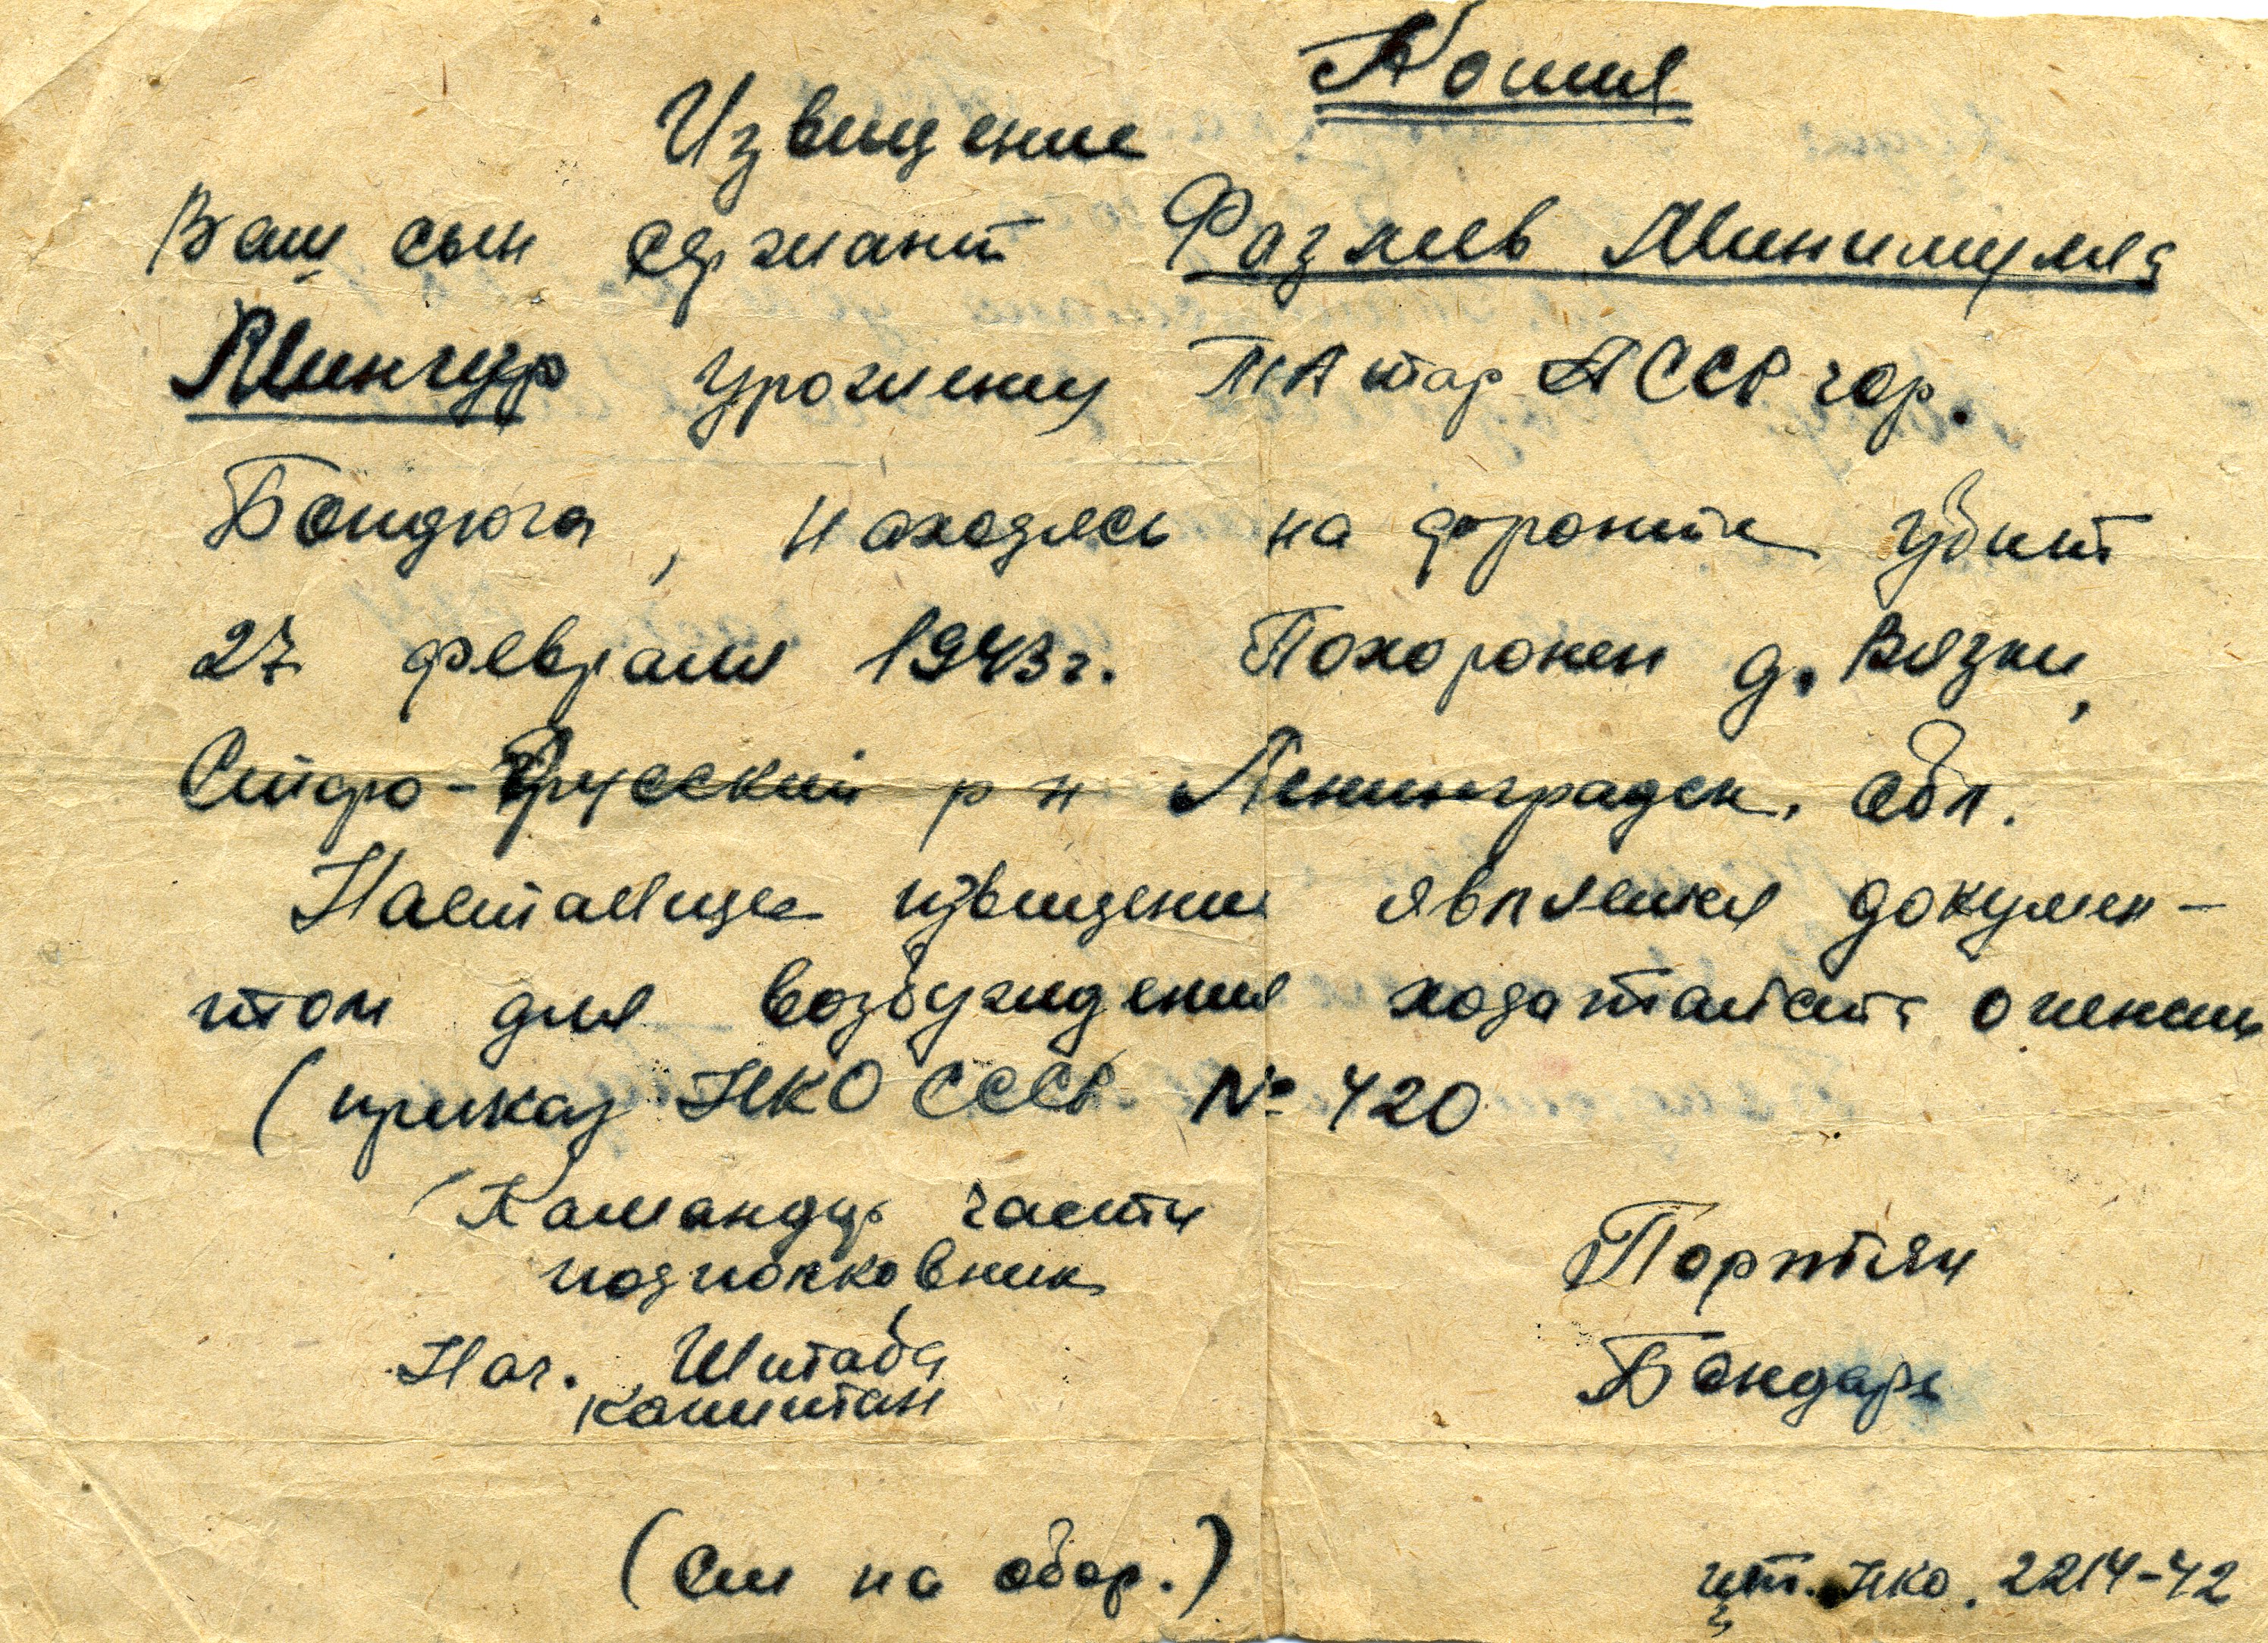 Копия
Извещение
Ваш сын сержант Фазлиев Минимулла
Мингер уроженец ТАтар АССР гор.
Бондюга, находясь на фронте убит
27 февраля 1943 г. Похоронен д. Вязки,
Старо-Русский р н Ленинградск. обл.
Настоящее извещение является докумен-
том для возбуждения ходатайства о пенсии
(приказ НКО СССР № 420
Командир части
подполковник Портян
Нач. Штаба
капитан Бондарь
(См на обор.) НКО. 2214-42